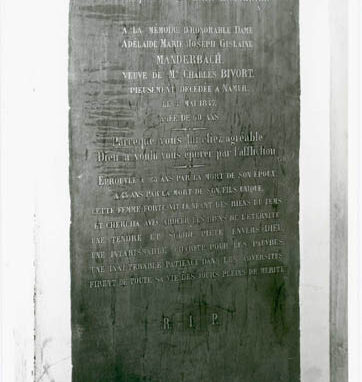 A LA MÉMOIRE D'HONORABLE DAME
ADÉLAÏDE MARIE JOSEPH GISLAINE
MANDERBACH,
VEUVE DE Mr CHARLES BIVORT,
PIEUSEMENT DÉCÉDÉE A NAMUR,
LE MAI 1847,
AGÉE DE 60 ANS
Parceque vous lui étiez agréable
Dieu a voulu vous éprouver par l'affliction
ÉPROUVÉE A 35 ANS PAR LA MORT DE SON ÉPOUX
A 45 ANS PAR LA MORT DE SON FILS UNIQUE,
CETTE FEMME FORTE VIT LE NÉANT DES BIENS DU TEMS
ET CHERCHA AVEC ARDEUR LES BIENS DE L'ÉTERNITÉ
UNE TENDRE ET SOLIDE PIÉTÉ ENVERS DIEU,
UNE INTARISSABLE CHARITÉ POUR LES PAUVRES,
UNE INALTÉRABLE PATIENCE DANS LES ADVERSITÉS
FIRENT DE TOUTE SA VIE DES JOURS PLEINS DE MÉRITE
R. I. P.